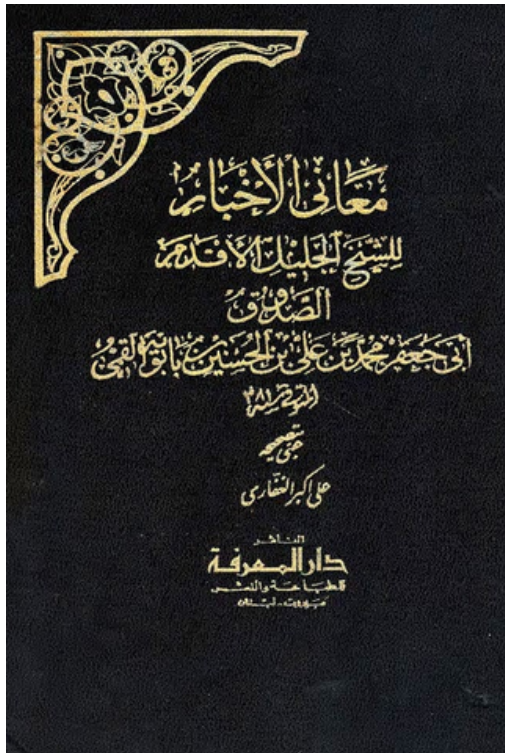 معاني الأخبار
للشيخ الجليل الأقدم
الصدوق
أبي جعفر محمد بن علي بن الحسين بن بابويه القمي
المتوفى سنة ٣٨١
عني بتصحيحه
علي أكبر الغفاري
الناشر
دار المعرفة
للطباعة والنشر
بيروت - لبنان